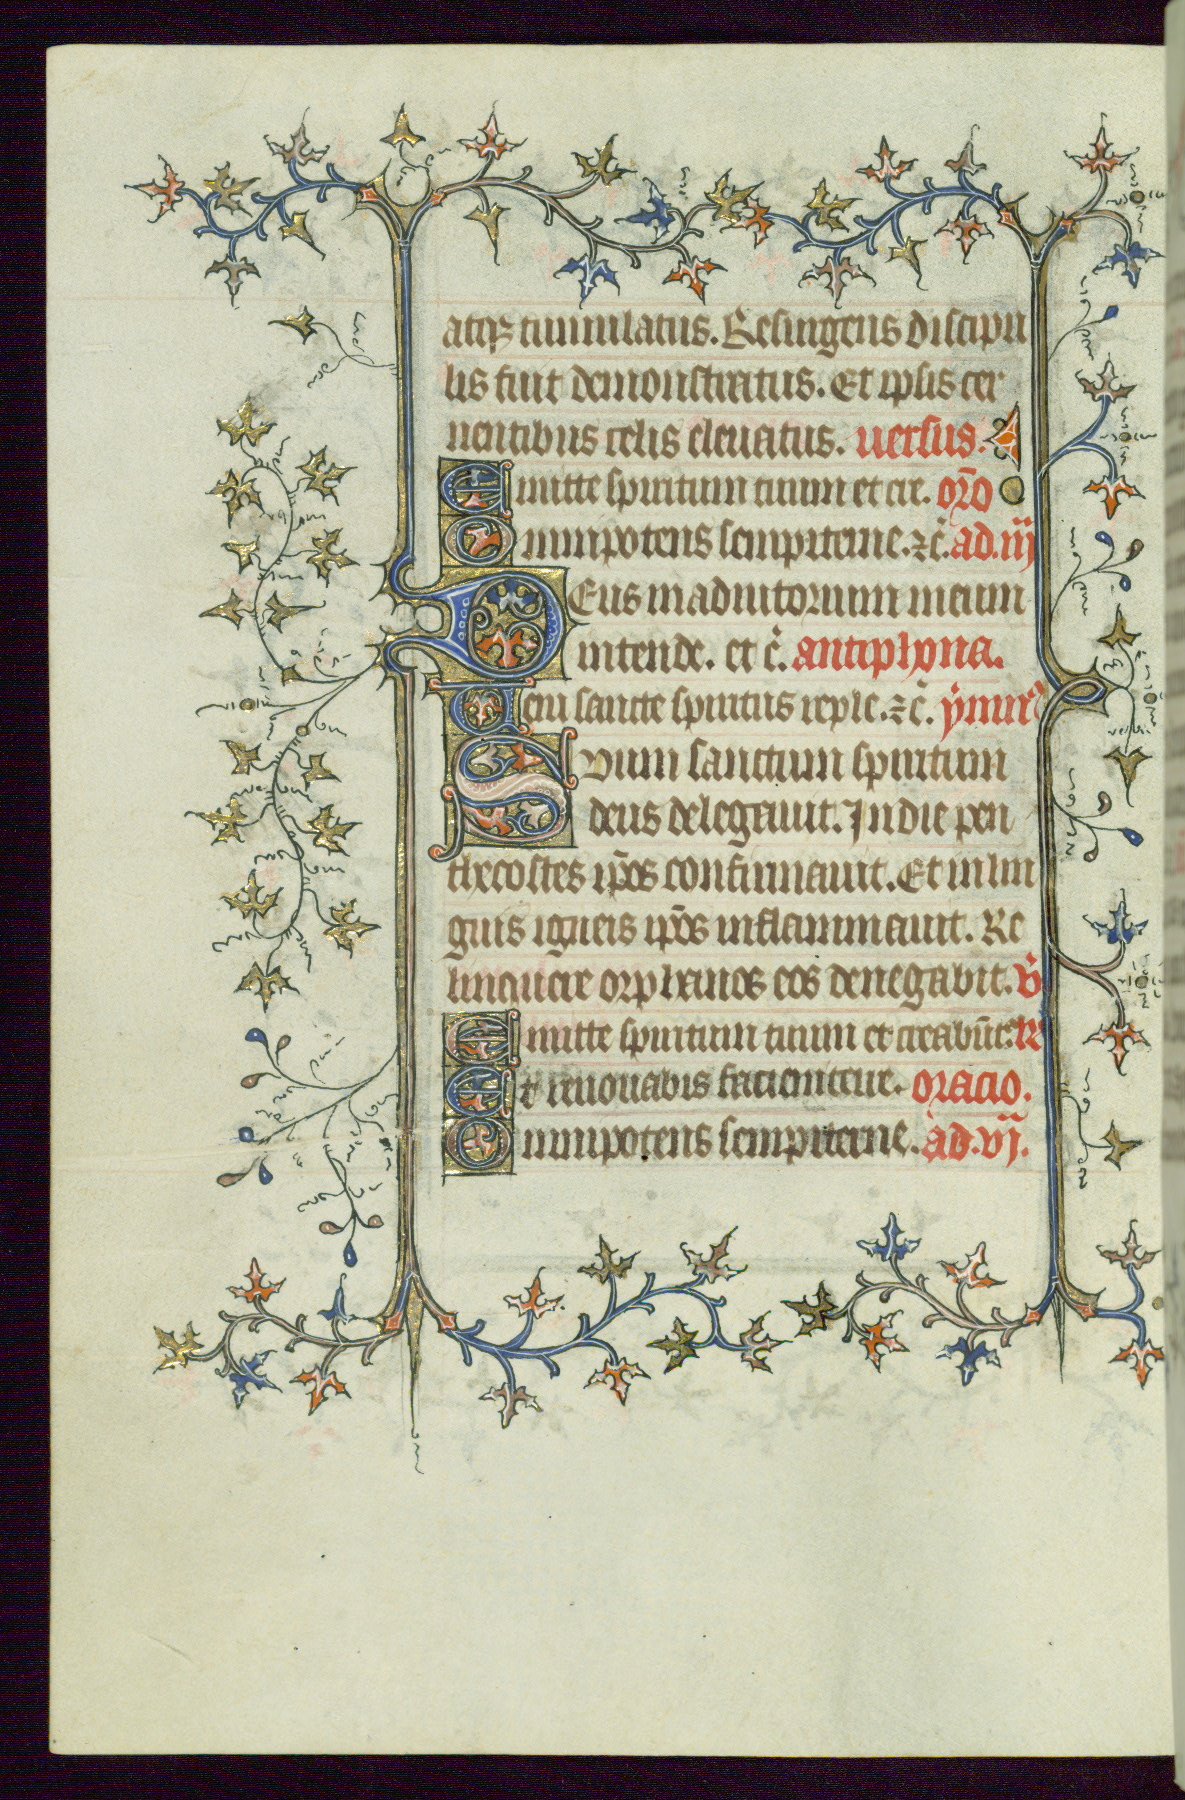 atqꝫ tumulatus. Resurgens discipu
lis fuit demonstratus. Et ipsis cer
nentibus celis eleuatus. uersus.
Emitte spiritum tuum et cre. or̄o
Omnipotens sempiterne. ⁊c̄. ad. iij
Deus in adiutorium meum
intende. et c̄. antiphona.
Veni sancte spiritus reple. ⁊c̄. ymn
Suum sanctum spiritum
deus delegauit. In die pen
thecostes ip̄os confirmauit. Et in lin
guis igneis ip̄os inflammauit. Re
linquere orphanos eos denegabit. v̄
Emitte spiritum tuum et creabūt. R
Et renouabis faciem terre. oracio.
Omnipotens sempiterne. ad. vj.